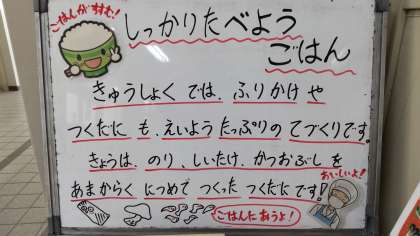 ごはんがすすむ!
しっかりたべよう
ごはん
きゅうしょく では、ふりかけ や
つくだに も、えいよう たっぷりの てづくりです。
きょうは、のり、しいたけ、かつおぶし を
あまからく につめて つくった つくだに です!
おいしいよ!
ごはんにあうよ!